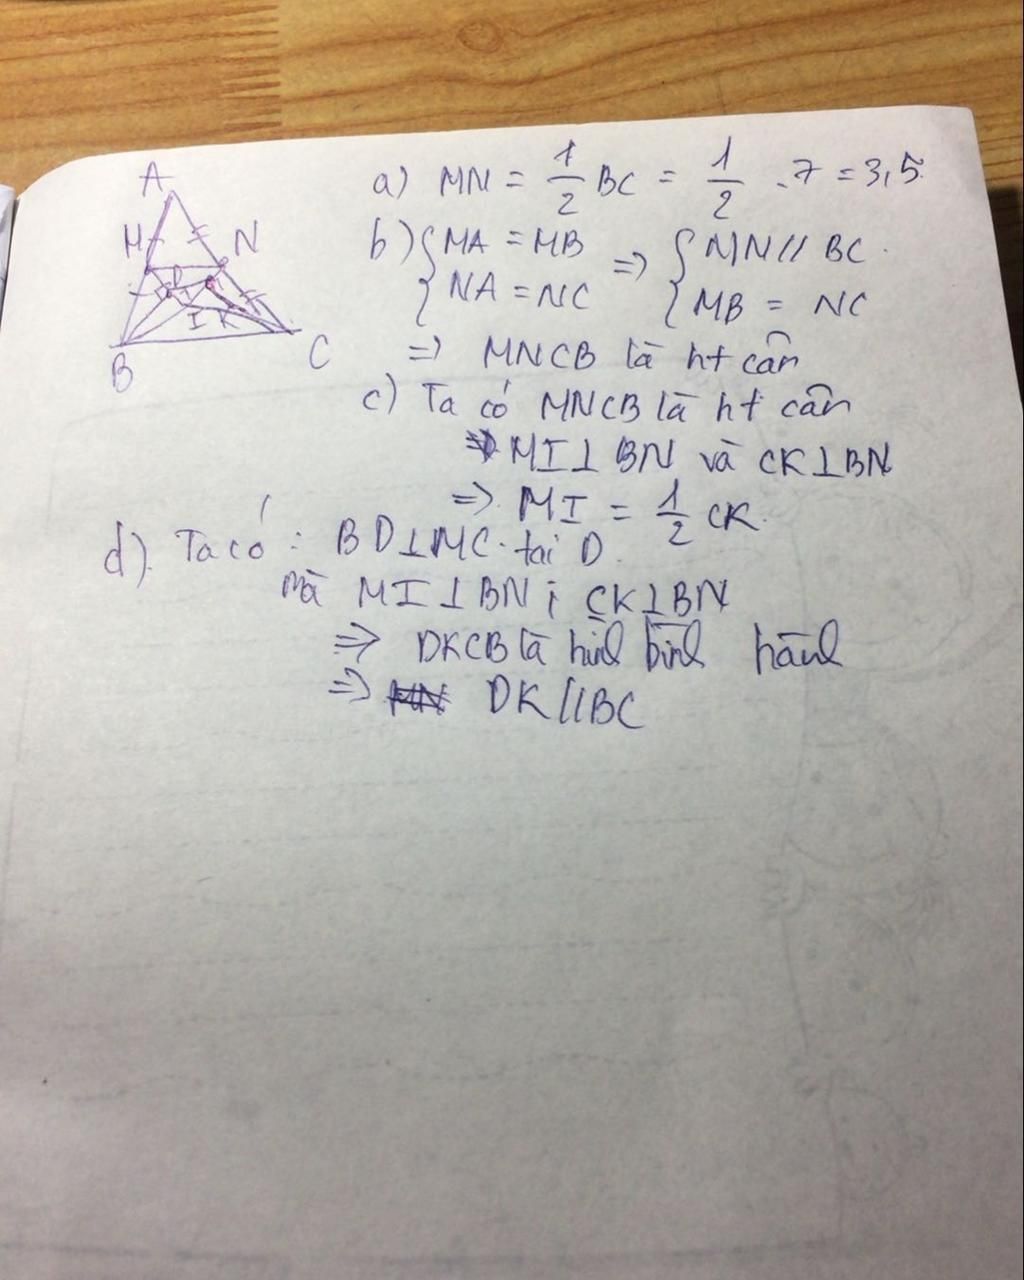 A
M N
D
I K
B C
a) MN = 1/2 BC = 1/2 . 7 = 3,5.
b) { MA = MB
NA = NC => { MN // BC.
MB = NC
=> MNCB là ht cân
c) Ta có MNCB là ht cân
=> MI ⊥ BN và CK ⊥ BN
=> MI = 1/2 CK.
d). Ta có : BD ⊥ MC. tại D.
mà MI ⊥ BN ; CK ⊥ BN
=> DKCB là hình bình hành
=> DK // BC